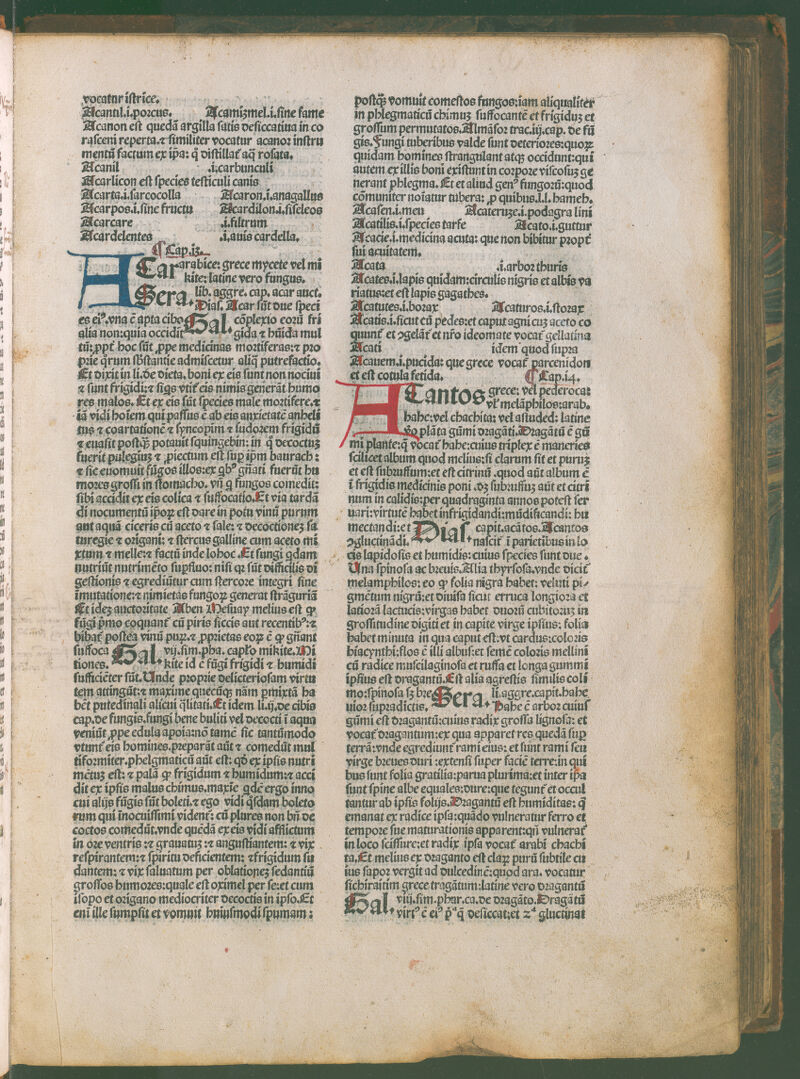 vocatur īstrice.
Acantil.i.porcus. Acamizmel.i.sine fame
Acanon est quedā argilla satis desiccatiua in co
rasceni reperta.⁊ similiter vocatur acanor instru
mentū factum ex ipa: q̄ distillat᷑ aq̄ rosata.
Acanil .i.carbunculi
Acarlicon est species testiculi canis
Acarta.i.sarcocolla Acaron.i.anagallus
Acarpos.i.sine fructu Acardilon.i.sisileos
Acarcare .i.filtrum
Acardelentes .i.auis cardella.
¶ Cap.i3.
ACar arabice: grece mycete vel mi
kite: latine vero fungus.
Sera. lib. aggre. cap. acar auct.
Dias. Acar sūt due speci
es eiꝰ.vna ē apta cibo Gal. cōplexio eorū fri
alia non:quia occidit. gida ⁊ hūida mul
tū:ꝓpt᷑ hoc sūt ꝓpe medicinas mortiferas:⁊ pro
prie q̄rum sb̄stantie admiscetur aliq̄ putrefactio.
Et dixit in li.de dieta. boni ex eis sunt non nociui
⁊ sunt frigidi:⁊ siq̄s vtit᷑ eis nimis generāt humo
res malos. Et ex eis sūt species male mortifere.⁊
iā vidi hoīem qui passus ē ab eis anxietatē anheli
tus ⁊ coartationē ⁊ syncopim ⁊ sudorem frigidū
⁊ euasit postq̄ȝ potauit squingebin: in q̄ decoctus
fuerit pulegiuȝ ⁊ ꝓiectum est sup ipm baurach:
⁊ sic euomuit fūgos illos:ex qb᷒ gn̄ati fuerūt hu
mores grossi in stomacho. vn̄ q̄ fungos comedit:
sibi accidit ex eis colica ⁊ suffocatio. Et via tardā
di nocumentū ip̄oꝝ est dare in potu vinū purum
aut aquā ciceris cū aceto ⁊ sale: ⁊ decoctioneȝ sa
turegie ⁊ origani: ⁊ stercus galline cum aceto mi
xtum ⁊ melle:⁊ factū inde lohoc. Et fungi qdam
nutriūt nutrimēto supfluo: nisi ꝙ sūt difficilis di
gestionis ⁊ egrediūtur cum stercore integri sine
īmutatione:⁊ nimietas fungoꝝ generat strāguriā
Et ideȝ auctoritate Aben Mesuay melius est ꝙ
fūgi p̄mo coquant᷑ cū piris siccis aut recentib᷒:⁊
bibat᷑ postea vinū puꝝ.⁊ ꝓprietas eoꝝ ē ꝙ gn̄ant
suffoca Gal. vij.sim.pha. caplo mikite. Mi
tiones. kite id ē fūgi frigidi ⁊ humidi
sufficiēter sūt. Unde proprie delicteriosam virtu
tem attingūt:⁊ maxime quecūq; nām p̄mixtā ha
bēt putedinali alicui q̄litati. Et idem li.ij.de cibis
cap.de fungis.fungi bene buliti vel decocti ī aqua
veniūt ꝓpe edula apoia:nō tamē sic tantūmodo
vtunt᷑ eis homines.preparāt aūt ⁊ comedūt mul
tiformiter.phelgmaticū aūt est: qd̄ ex ipsis nutri
mētuȝ est: ⁊ palā ꝙ frigidum ⁊ humidum:⁊ acci
dit ex ipsis malus chimus.maxīe qdē ergo inno
cui alijs fūgis sūt boleti.⁊ ego vidi q̄sdam boleto
rum qui īnocuissimi vident᷑: cū plures non bn̄ de
coctos comedūt.vnde quēdā ex eis vidi afflictum
in ore ventris :⁊ grauatuȝ :⁊ angustiantem: ⁊ vix
respirantem:⁊ spiritu deficientem: ⁊frigidum su
dantem: ⁊ vix saluatum per oblationeȝ sedantiū
grossos humores:quale est oximel per se:et cum
isopo et origano mediocriter decoctis in ipso. Et
eni ille sumpsit et vomuit huiusmodi spumam:
postq̄ȝ vomuit comestos fungos:iam aliqualiter
in phlegmaticū chimuȝ suffocantē et frigiduȝ et
grossum permutatos. Almāsor trac.iij.cap. de fū
gis. Fungi tuberibus valde sunt deteriores:quoꝝ
quidam homines strangulant atq; occidunt:qui
autem ex illis boni existunt in corpore viscosuȝ ge
nerant phlegma. Et est aliud genᷣ fungorū:quod
cōmuniter noīatur tubera: ꝓ quibus.l.l. hameh.
Acasen.i.meu Acateruȝe.i.podagra lini
Acatilis.i.species tarfe Acato.i.guttur
Acacie.i.medicina acuta: que non bibitur propt᷑
sui acuitatem.
Acata .i.arbor thuris
Acates.i.lapis quidam:circulis nigris et albis va
riatus:et est lapis gagathes.
Acatutes.i.borax Acaturos.i.storax
Acatis.i.sicut cū pedes:et caput agni cuȝ aceto co
quunt᷑ et ɔgelāt᷑ et nr̄o ideomate vocat᷑ gellatina
Acati idem quod supra
Acauem.i.pucida: que grece vocat᷑ parcenidon
et est cotula fetida. ¶ Cap.i4.
ACantos grece: vel pederota:
vel melāphilos:arab.
habe:vel chachita: vel astuded: latine
vo plāta gūmi dragāti. Dragātū ē gū
mi plante:q̄ vocat᷑ habe:cuius triplex ē maneries
scilicet album quod melius:si clarum sit et puruȝ
et est subruffum:et est citrinū .quod aūt album ē
ī frigidis medicinis poni .dȝ sub:uffuȝ aūt et citri
num in calidis:per quadraginta annos potest ser
uari:virtutē habet infrigidandi:mūdificandi: hu
mectandi:et Dias. capit.acātos. Acantos
ɔglucinādi. nascit᷑ ī parietibus in lo
cis lapidosis et humidis: cuius species sunt due.
Una spinosa ac breuis. Alia thyrsosa.vnde dicit᷑
melamphilos: eo ꝙ folia nigra habet: veluti pi⸗
gmētum nigrū:et diuisa sicut erruca longiora et
latiorā lactucis:virgas habet duorū cubitoruȝ in
grossitudine digiti et in capite virge ipsius: folia
habet minuta in qua caput est.vt cardus:coloris
hiacynthi:flos ē illi albus:et semē coloris mellini
cū radice muscilaginosa et ruffa et longa gummi
ipsius est dragantū. Est alia agrestis similis coli
mo:spinosa sȝ bre Sera. li.aggre.capit.habe
uior supradictis. Habe ē arbor cuius
gūmi est dragantū:cuius radix grossa lignosa: et
vocat᷑ dragantum:ex qua apparet res quedā sup
terrā:vnde egrediunt᷑ rami eius: et sunt rami seu
virge breues duri :extensi super faciē terre:in qui
bus sunt folia gratilia:parua plurima:et inter ipa
sunt spine albe equales:dure:que tegunt᷑ et occul
tantur ab ipsis folijs. Dragantū est humiditas: q̄
emanat ex radice ipsa:quādo vulneratur ferro et
tempore sue maturationis apparent:qn̄ vulnerat᷑
in loco scissure:et radix ipsa vocat᷑ arabī chachi
ta. Et melius ex draganto est claꝝ purū subtile cu
ius sapor vergit ad dulcedinē:quod ara. vocatur
sichiraitim grece tragātum:latine vero dragantū
Gal. viij.sim.phar.ca.de dragāto. Dragātū
virtᷣ ē eiᷣ p̄ q̄ desiccat:et ɔglutinat